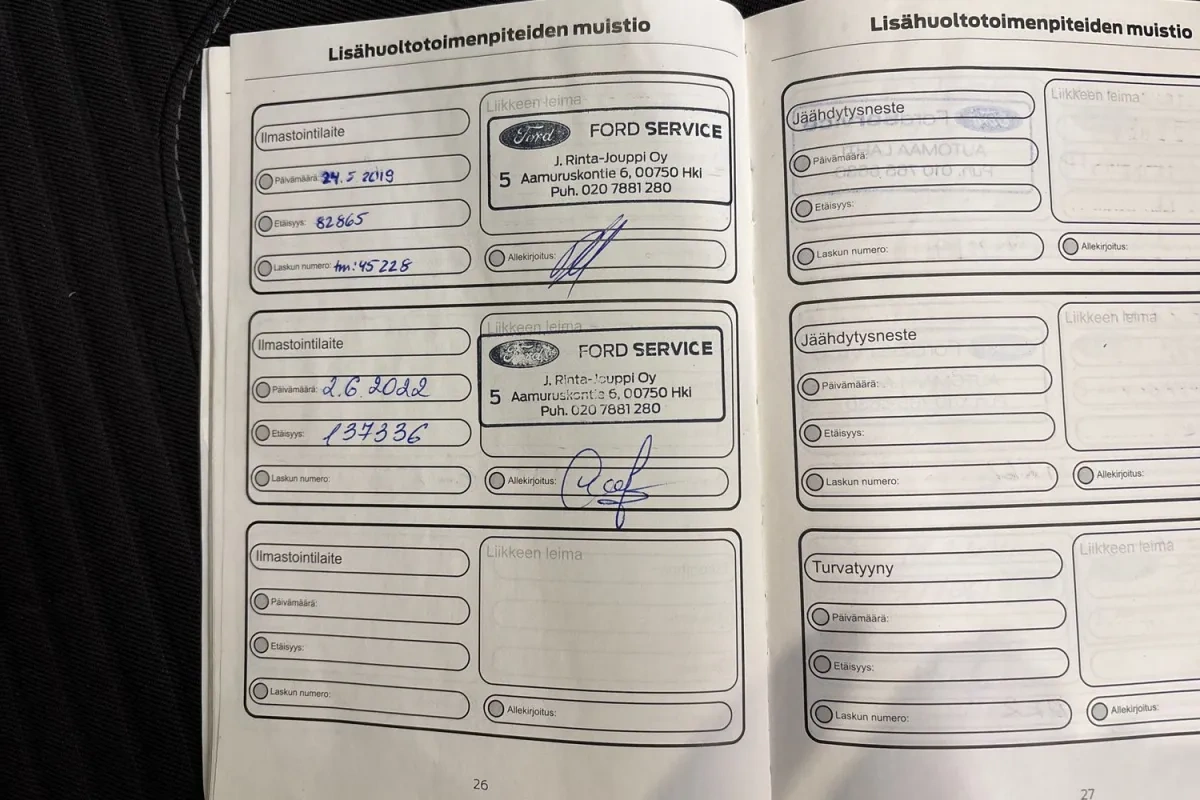 Lisähuoltotoimenpiteiden muistio
Ilmastointilaite
Päivämäärä: 24.5 2019
Etäisyys: 82865
Laskun numero: tm: 45228
Liikkeen leima
Ford
FORD SERVICE
J. Rinta-Jouppi Oy
5 Aamuruskontie 6, 00750 Hki
Puh. 020 7881 280
Allekirjoitus:
Ilmastointilaite
Päivämäärä: 2.6.2022
Etäisyys: 137336
Laskun numero:
Liikkeen leima
Ford
FORD SERVICE
J. Rinta-Jouppi Oy
5 Aamuruskontie 6, 00750 Hki
Puh. 020 7881 280
Allekirjoitus:
Ilmastointilaite
Päivämäärä:
Etäisyys:
Laskun numero:
Liikkeen leima
Allekirjoitus:
26
Lisähuoltotoimenpiteiden muistio
Jäähdytysneste
Päivämäärä:
Etäisyys:
Laskun numero:
Liikkeen leima
Allekirjoitus:
Jäähdytysneste
Päivämäärä:
Etäisyys:
Laskun numero:
Liikkeen leima
Allekirjoitus:
Turvatyyny
Päivämäärä:
Etäisyys:
Laskun numero:
Liikkeen leima
Allekirjoitus:
27